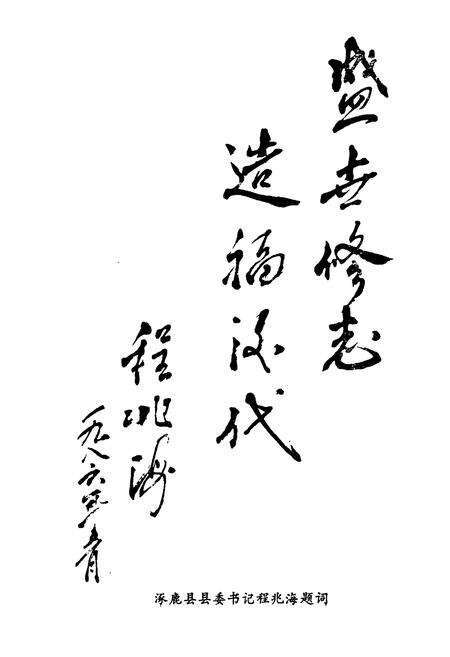 盛世修志
造福后代
程兆海
一九八六年
涿鹿县县委书记程兆海题词